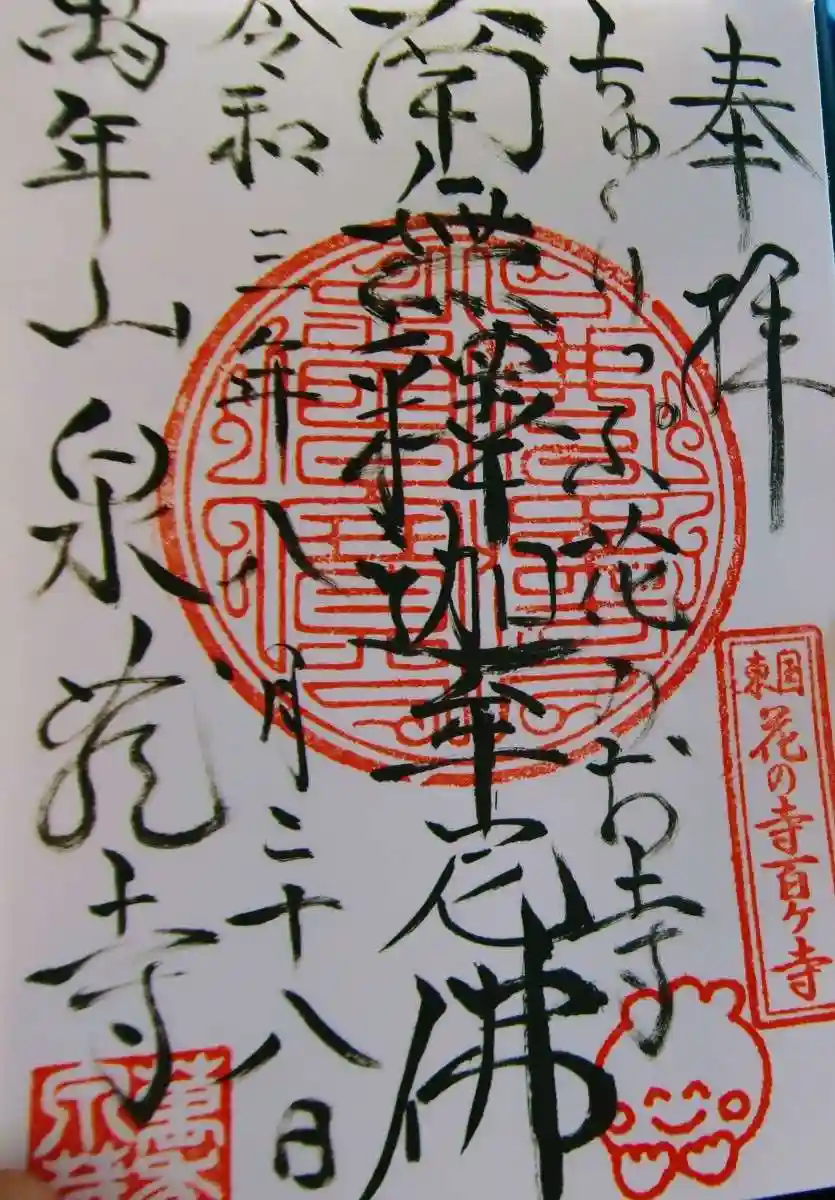 奉拝
ちゅ〜りっぷ花のお寺
南無釋迦牟尼佛
令和三年八月二十八日
萬年山泉龍寺
東国
花の寺百ヶ寺